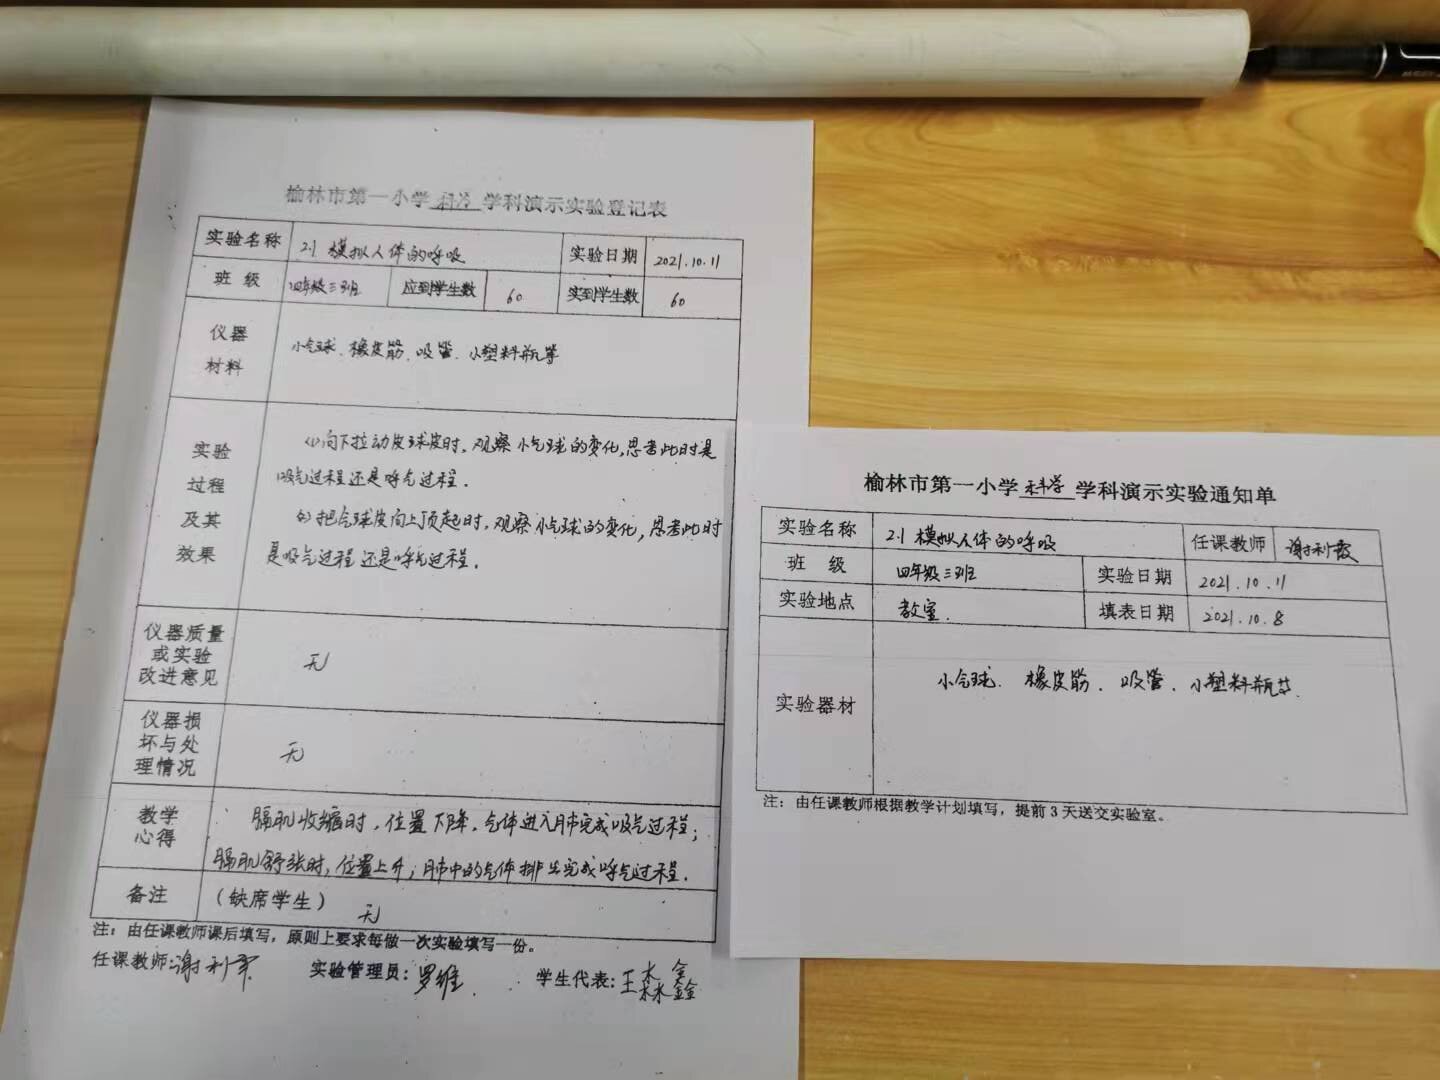 榆林市第一小学 科学 学科演示实验登记表
实验名称 2.1 模拟人体的呼吸 实验日期 2021.10.11
班 级 四年级三班 应到学生数 60 实到学生数 60
仪器
材料
小气球、橡皮筋、吸管、小塑料瓶等
实验
过程
及其
效果
(1)向下拉动皮球皮时,观察小气球的变化,思考此时是
吸气过程还是呼气过程.
(2)把气球皮向上顶起时,观察小气球的变化,思考此时
是吸气过程还是呼气过程.
仪器质量
或实验
改进意见
无
仪器损
坏与处
理情况
无
教学
心得
膈肌收缩时,位置下降,气体进入肺完成吸气过程;
膈肌舒张时,位置上升;肺中的气体排出完成呼气过程.
备注 (缺席学生) 无
注:由任课教师课后填写,原则上要求每做一次实验填写一份。
任课教师:谢利霞 实验管理员:罗维 学生代表:王森鑫
榆林市第一小学 科学 学科演示实验通知单
实验名称 2.1 模拟人体的呼吸 任课教师 谢利霞
班 级 四年级三班 实验日期 2021.10.11
实验地点 教室. 填表日期 2021.10.8
实验器材 小气球、橡皮筋、吸管、小塑料瓶等.
注:由任课教师根据教学计划填写,提前3天送交实验室。